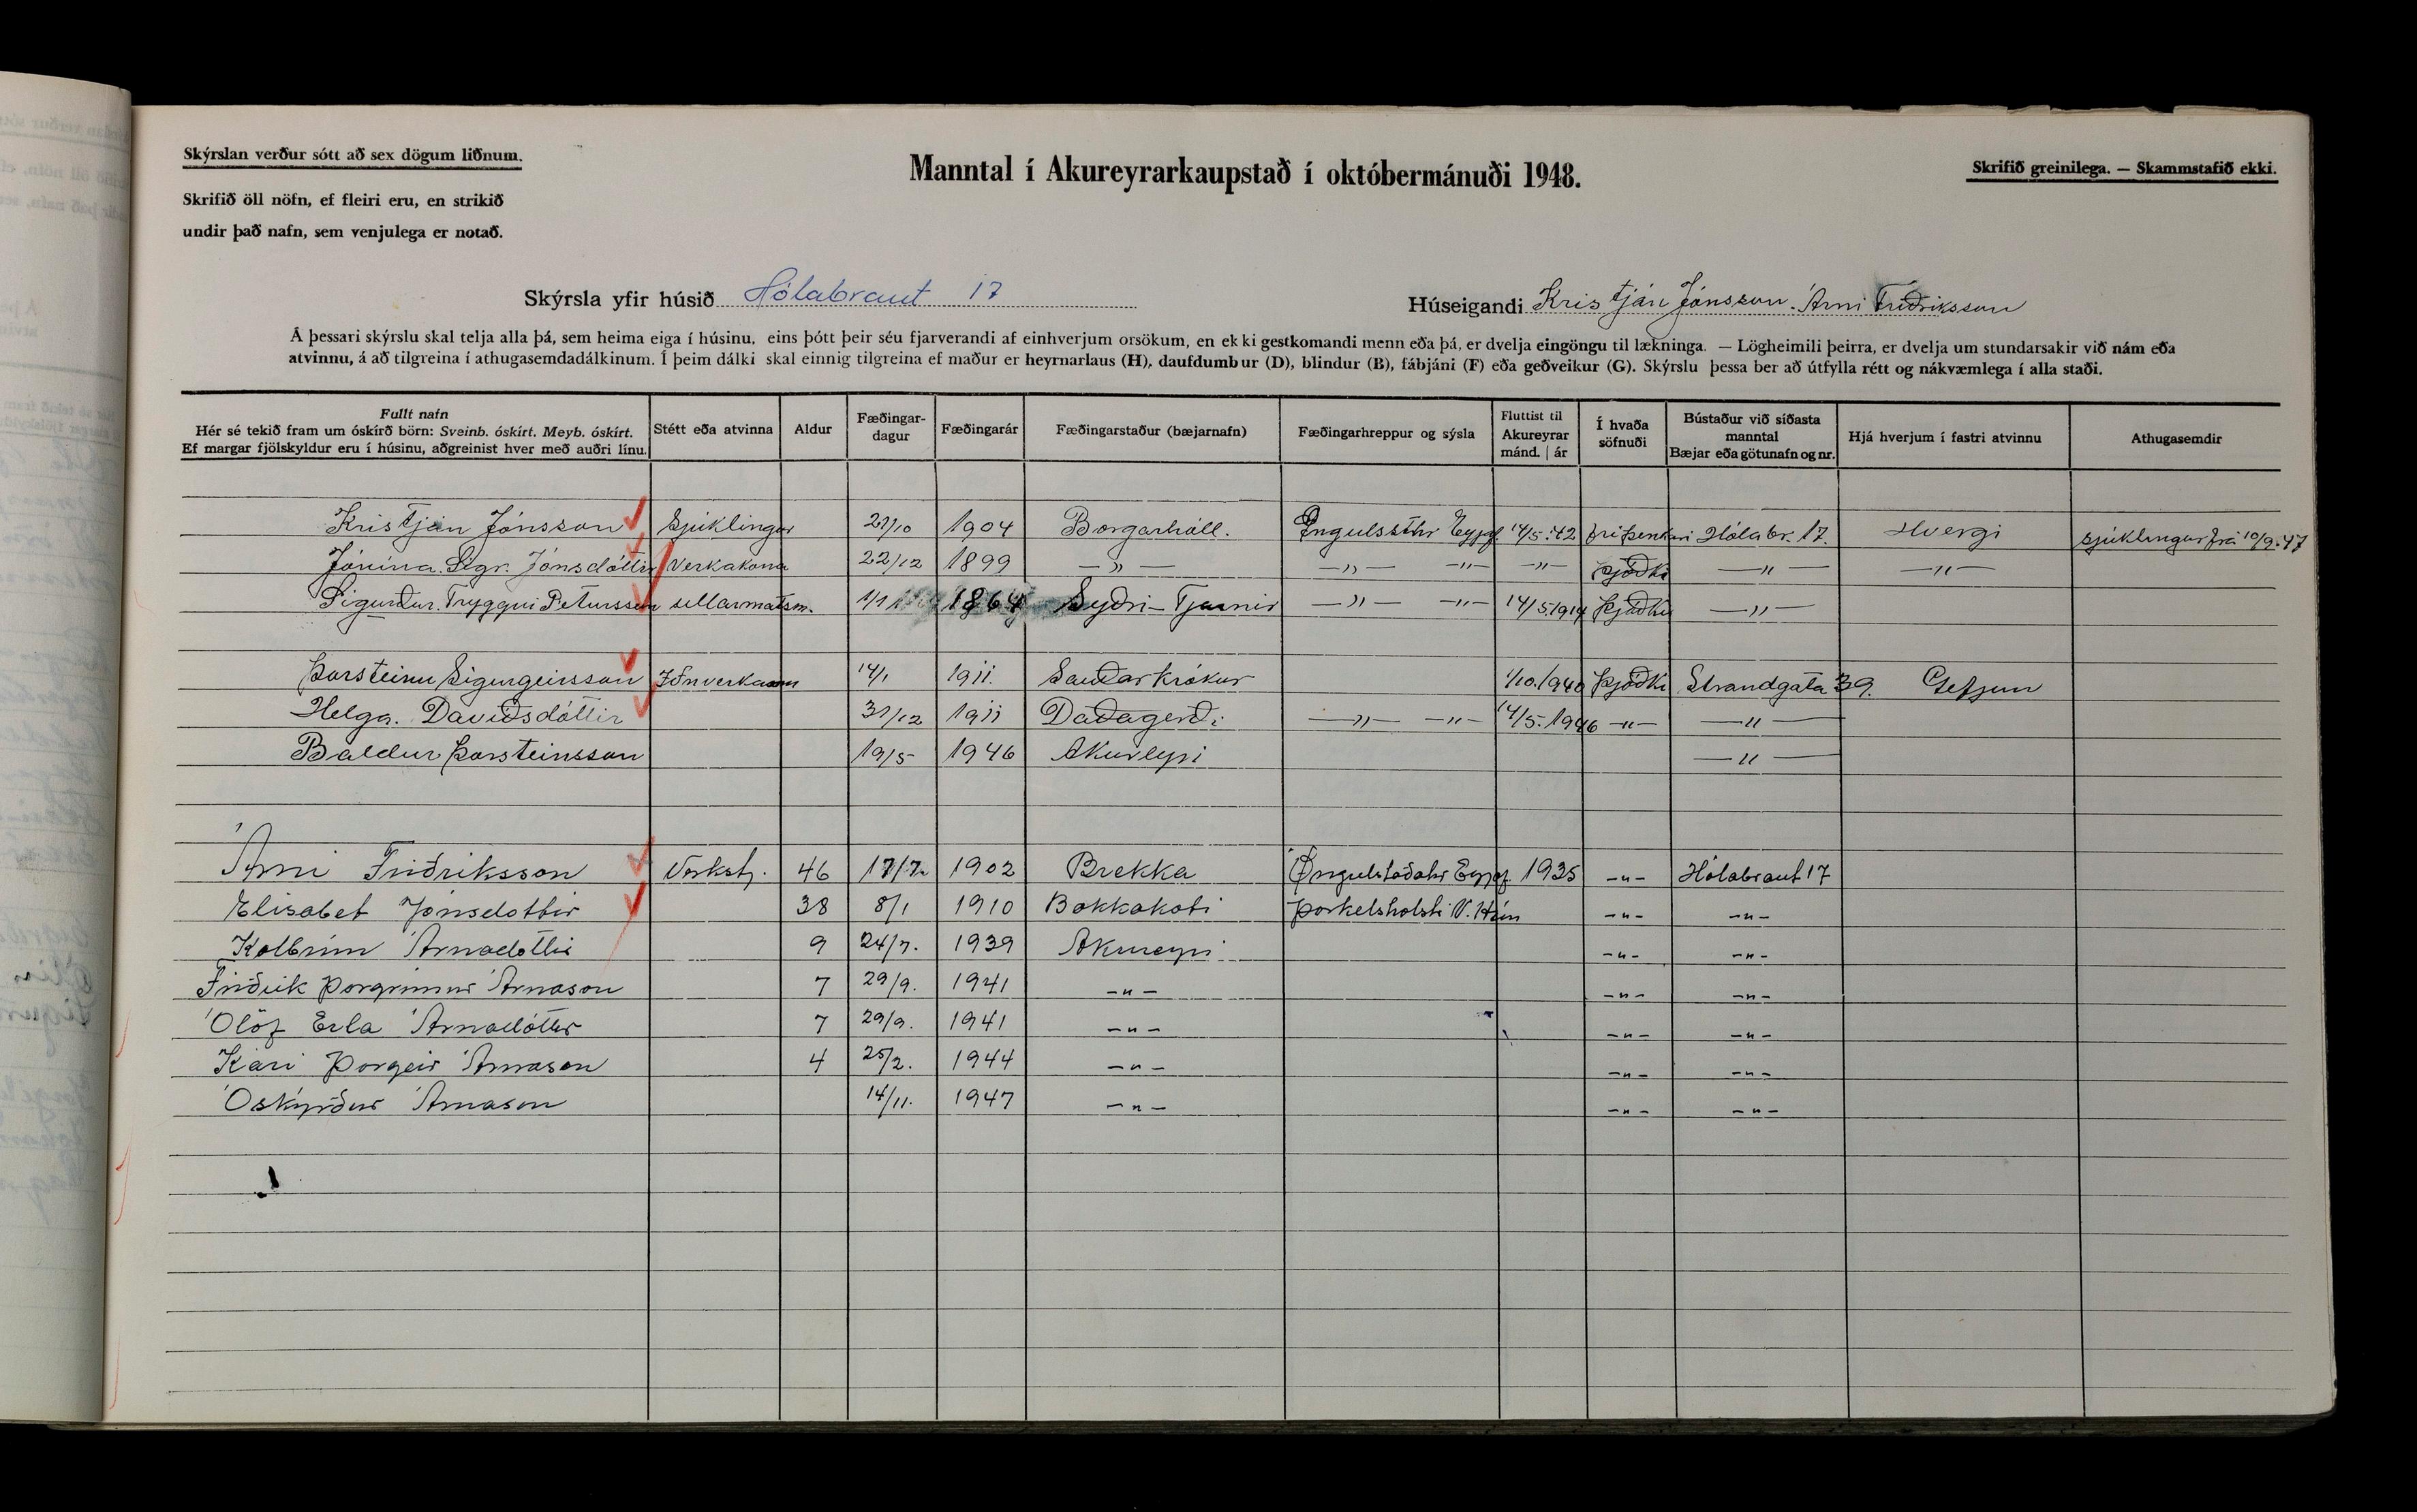 Skýrslan verður sótt að sex dögum liðnum.
Skrifið öll nöfn, ef fleiri eru, en strikið
undir það nafn, sem venjulega er notað.
Manntal í Akureyrarkaupstað í októbermánuði 1948.
Skrifið greinilega. — Skammstafið ekki.
Skýrsla yfir húsið Hólabraut 17
Húseigandi Kristján Jónsson. Árni Friðriksson
Á þessari skýrslu skal telja alla þá, sem heima eiga í húsinu, eins þótt þeir séu fjarverandi af einhverjum orsökum, en ekki gestkomandi menn eða þá, er dvelja eingöngu til lækninga. — Lögheimili þeirra, er dvelja um stundarsakir við nám eða
atvinnu, á að tilgreina í athugasemdadálkinum. Í þeim dálki skal einnig tilgreina ef maður er heyrnarlaus (H), daufdumbur (D), blindur (B), fábjáni (F) eða geðveikur (G). Skýrslu þessa ber að útfylla rétt og nákvæmlega í alla staði.
Fullt nafn
Hér sé tekið fram um óskírð börn: Sveinb. óskírt. Meyb. óskírt.
Ef margar fjölskyldur eru í húsinu, aðgreinist hver með auðri línu.
Stétt eða atvinna
Aldur
Fæðingar-
dagur
Fæðingarár
Fæðingarstaður (bæjarnafn)
Fæðingarhreppur og sýsla
Fluttist til
Akureyrar
mánd. | ár
Í hvaða
söfnuði
Bústaður við síðasta
manntal
Bæjar eða götunafn og nr.
Hjá hverjum í fastri atvinnu
Athugasemdir
Kristján Jónsson Sjúklingur 27/10 1904 Borgarhóll. Öngulssthr Eyjaf. 14/5.'42 fríþenkari Hólabr. 17. Hvergi sjúklingur frá 10/9.47
Jónína. Sigr. Jónsdóttir Verkakona 22/12 1899 —„— —„— —„— —„— Þjóðki —„— —„—
Sigurður. Tryggvi Petursson 1/1 1864 Syðri-Tjarnir —„— —„— 14/5.1914 Þjóðki —„—
Þorsteinn Sigurgeirsson Iðnverkam 14/1 1911. Sauðarkrókur 1/10.1940 Þjóðki Strandgata 39. Gefjun
Helga. Davíðsdóttir 31/12 1911 Daðagerði —„— —„— 14/5.1946 —„— —„—
Baldur Þorsteinsson 19/5 1946 Akureyri —„—
Árni Friðriksson Verkstj. 46 17/7. 1902 Brekka Öngulstaðahr Eyjaf. 1935 —„— Hólabraut 17
Elísabet Jónsdóttir 38 8/1 1910 Bakkakoti Þorkelsholshr V. Hún —„— —„—
Kolbrún Árnadóttir 9 24/7. 1939 Akureyri —„— —„—
Friðrik Þorgrímur Árnason 7 29/9. 1941 —„— —„— —„—
Ólöf Erla Árnadóttir 7 29/9. 1941 —„— —„— —„—
Kári Þorgeir Árnason 4 25/2. 1944 —„— —„— —„—
Óskýrður Árnason 14/11. 1947 —„— —„— —„—